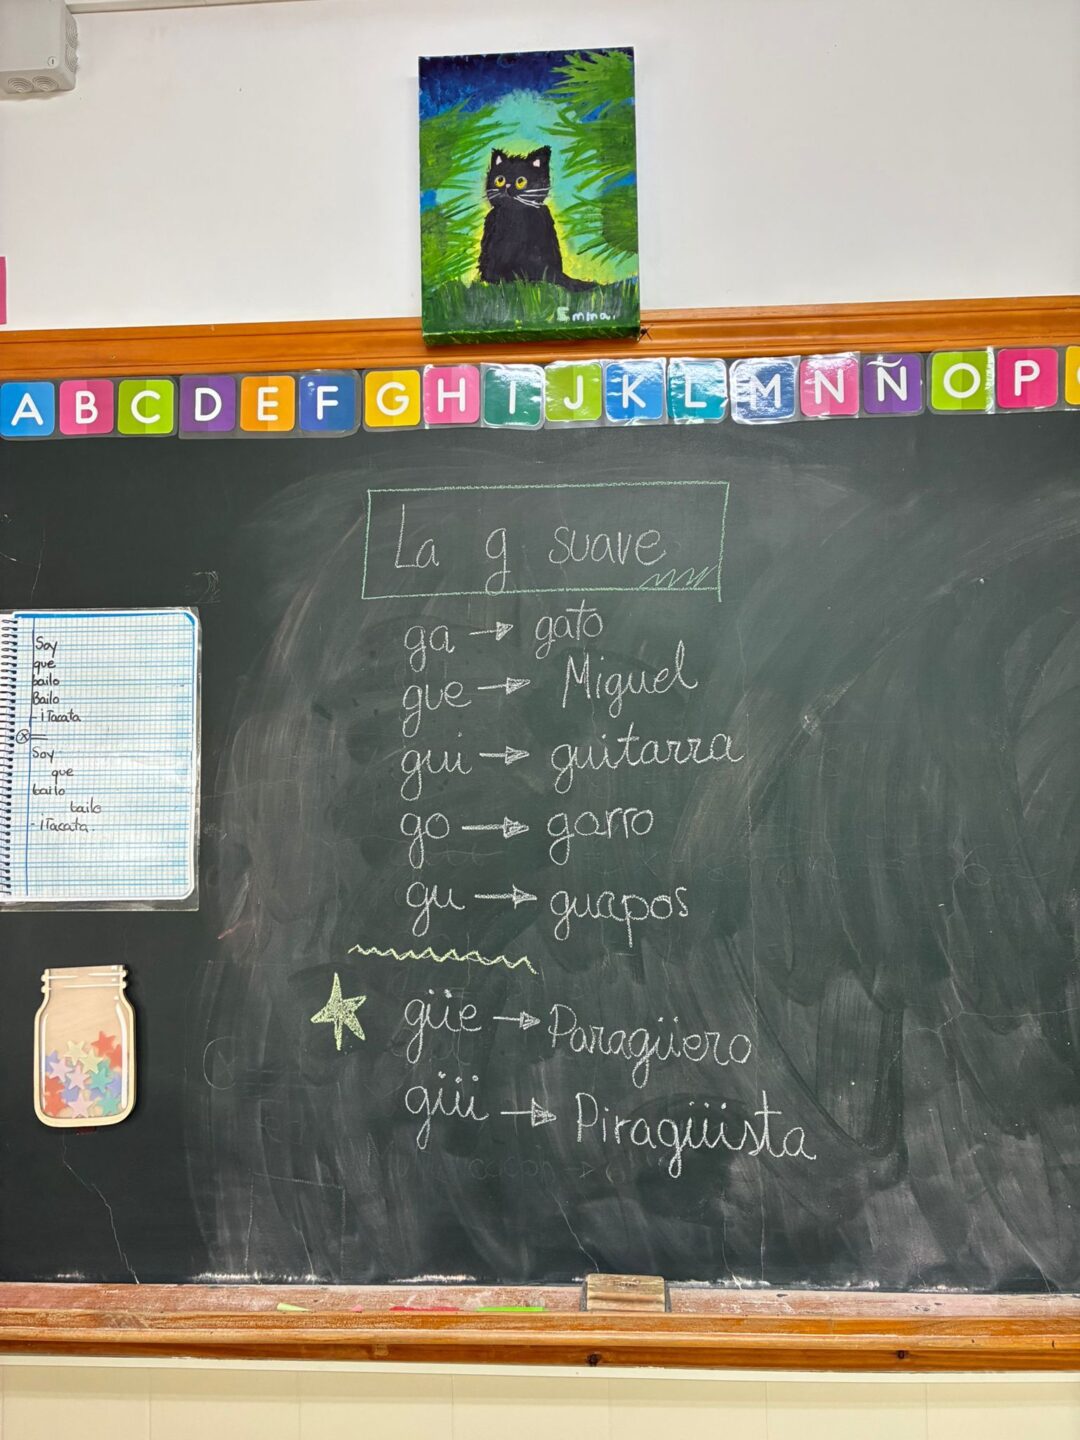 Emma.
A B C D E F G H I J K L M N Ñ O P
La g suave
ga → gato
gue → Miguel
gui → guitarra
go → gorro
gu → guapos
güe → Paragüero
güi → Piragüista
Soy
que
bailo
Bailo
- ¡Tacata
Soy
que
bailo
bailo
- ¡Tacata.